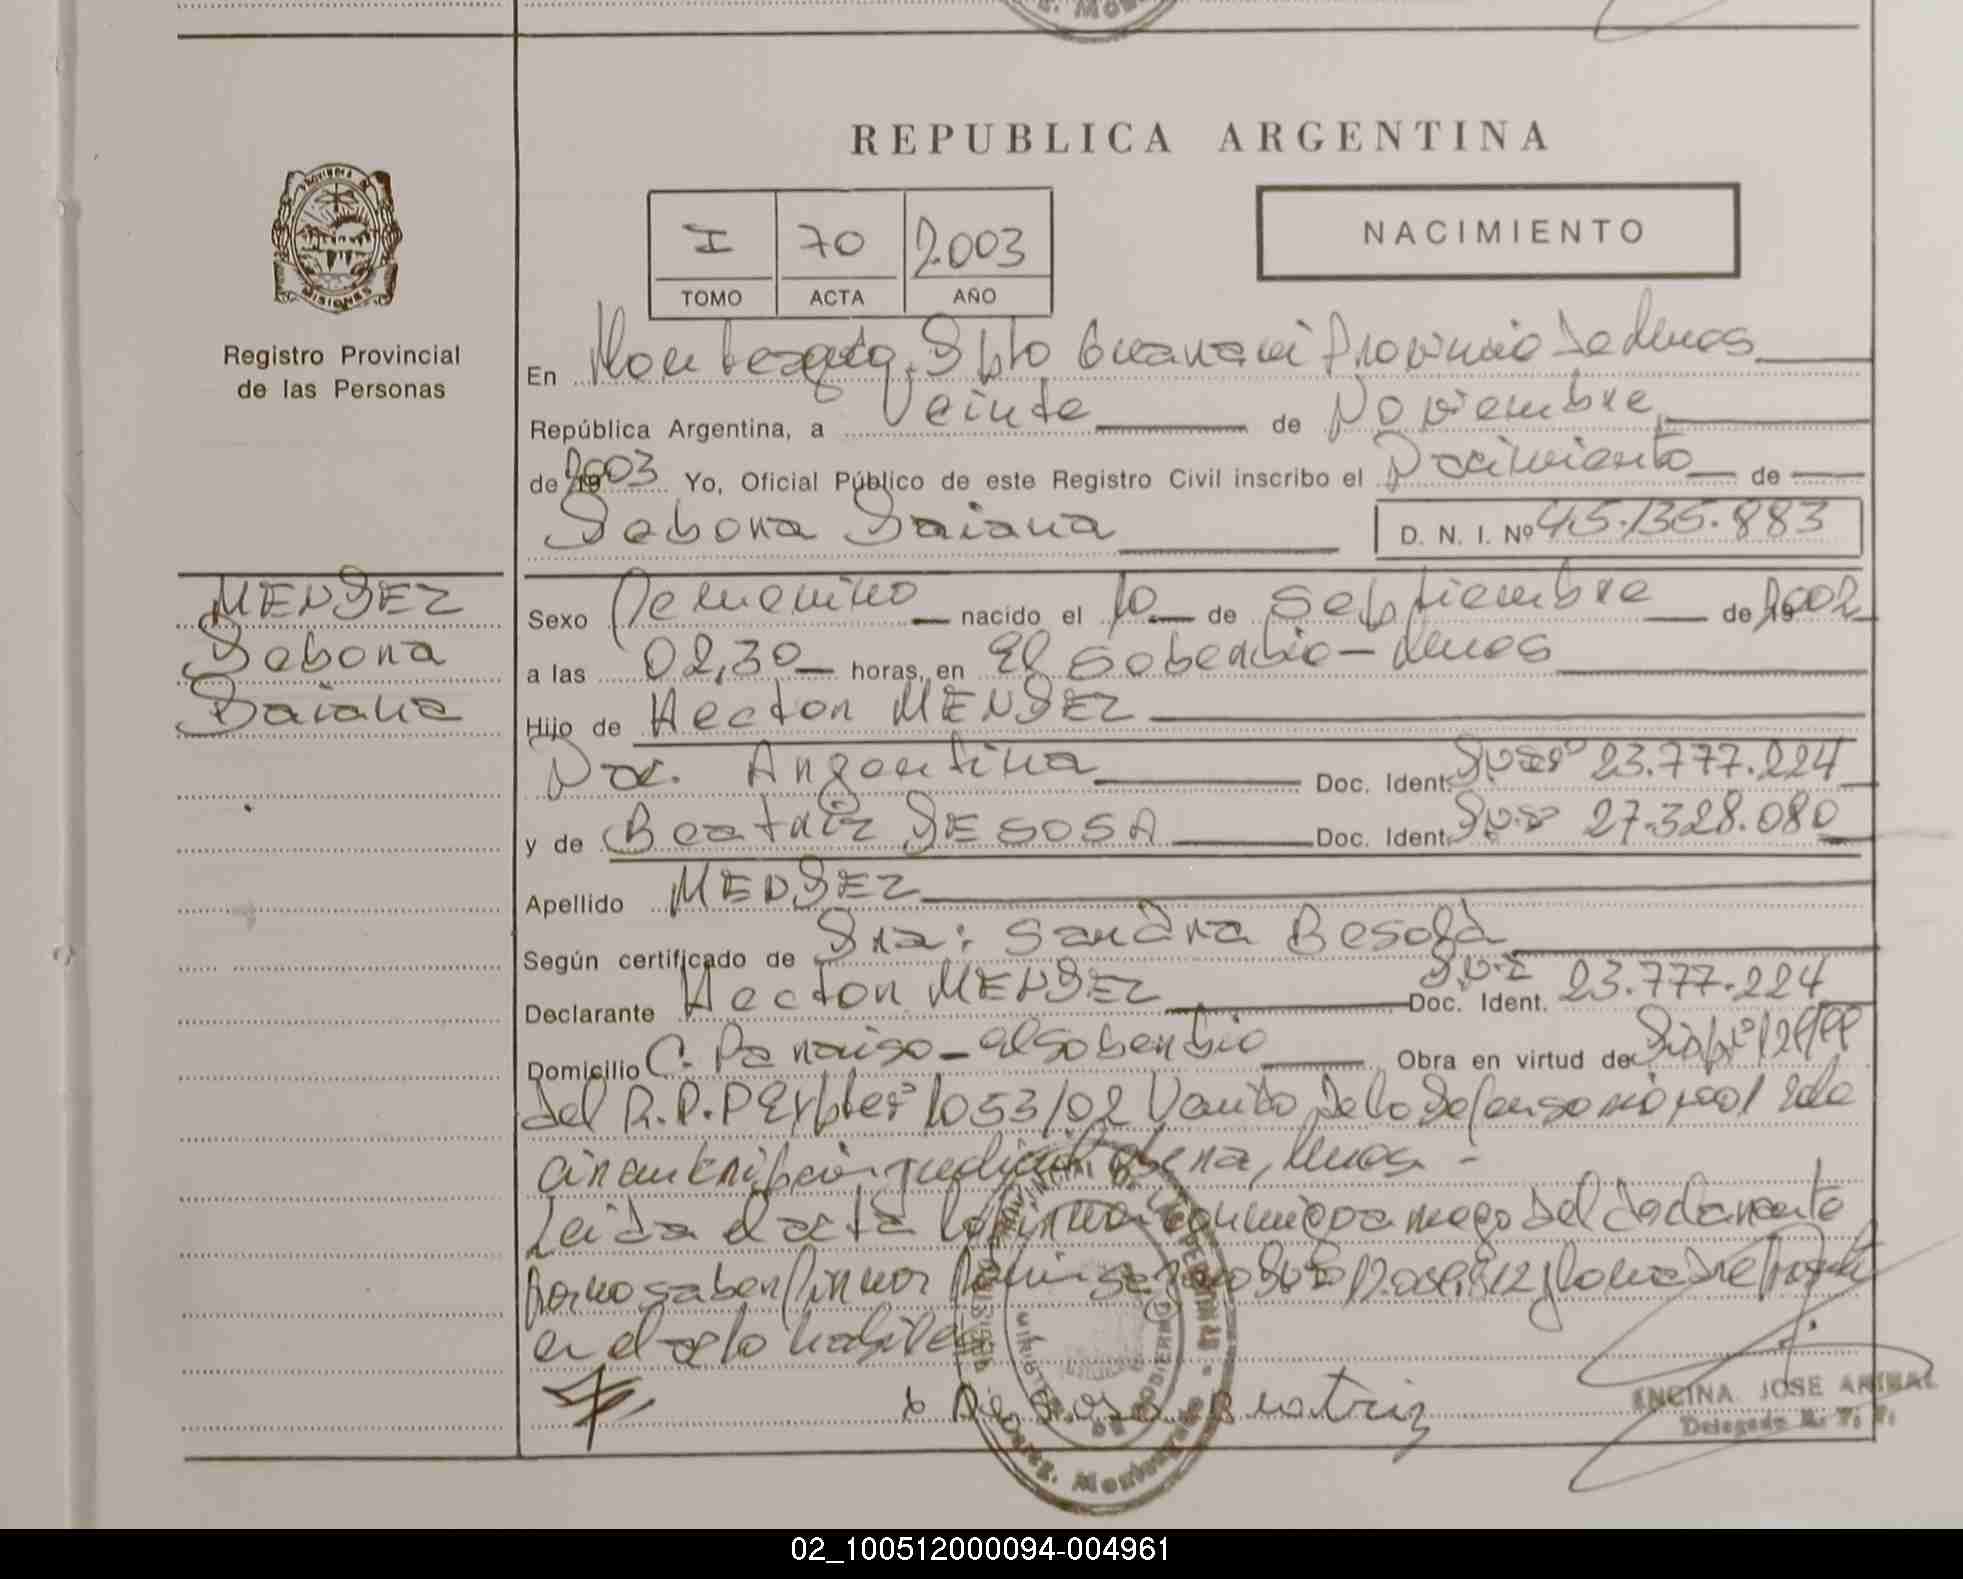 REPUBLICA ARGENTINA
I 70 2.003
TOMO ACTA AÑO
NACIMIENTO
PROVINCIA DE MISIONES
Registro Provincial
de las Personas
En Monteagudo, Dpto Guarani Provincia de Mnes
República Argentina, a Veinte de Noviembre
de 2003 Yo, Oficial Público de este Registro Civil inscribo el Nacimiento de
Debora Daiana D. N. I. Nº 45.135.883
MENDEZ
Debora
Daiana
Sexo Femenino nacido el 10 de Septiembre de 2002
a las 02,30 horas, en El Soberbio - Mnes
Hijo de Hector MENDEZ
Nac. Argentina Doc. Ident. 23.777.224
y de Beatriz DESOSA Doc. Ident. 27.328.080
Apellido MENDEZ
Según certificado de Sra: Sandra
Declarante Hector MENDEZ Doc. Ident. D.N.I 23.777.224
Domicilio C. Paraiso - El Soberbio Obra en virtud de
del R.P.P 1053/02
circunscripción judicial Obera, Mnes -
Leida el acta la firma conmigo a ruego del declarante
por no saber firmar
en el acto
Beatriz
ENCINA JOSE ANIBAL
Delegado R. P. P.
02_100512000094-004961